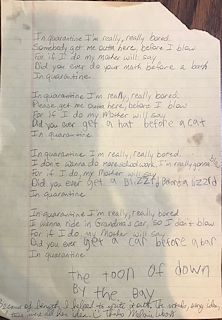 In quarantine I'm really, really bored.
Somebody get me outta here, before I blow
For if I do my mother will say
Did you ever do your math before a bath
In quarantine

In quarantine I'm really, really bored
Please get me outta here, before I blow
For if I do, my Mother will say
Did you ever get a hat before a cat
In quarantine

In quarantine I'm really, really bored.
I don't wanna do more school work, I'm really gonna
For if I do, my Mother will say
Did you ever get a Blizzard Before a lizard
In quarantine

In quarantine I'm really, really bored
I wanna ride in Grandma's car, so I don't blow
For if I do, my Mother will say
Did you ever get a car before a bar
In quarantine
The toon of down
By the Bay
Because of length, I helped to write